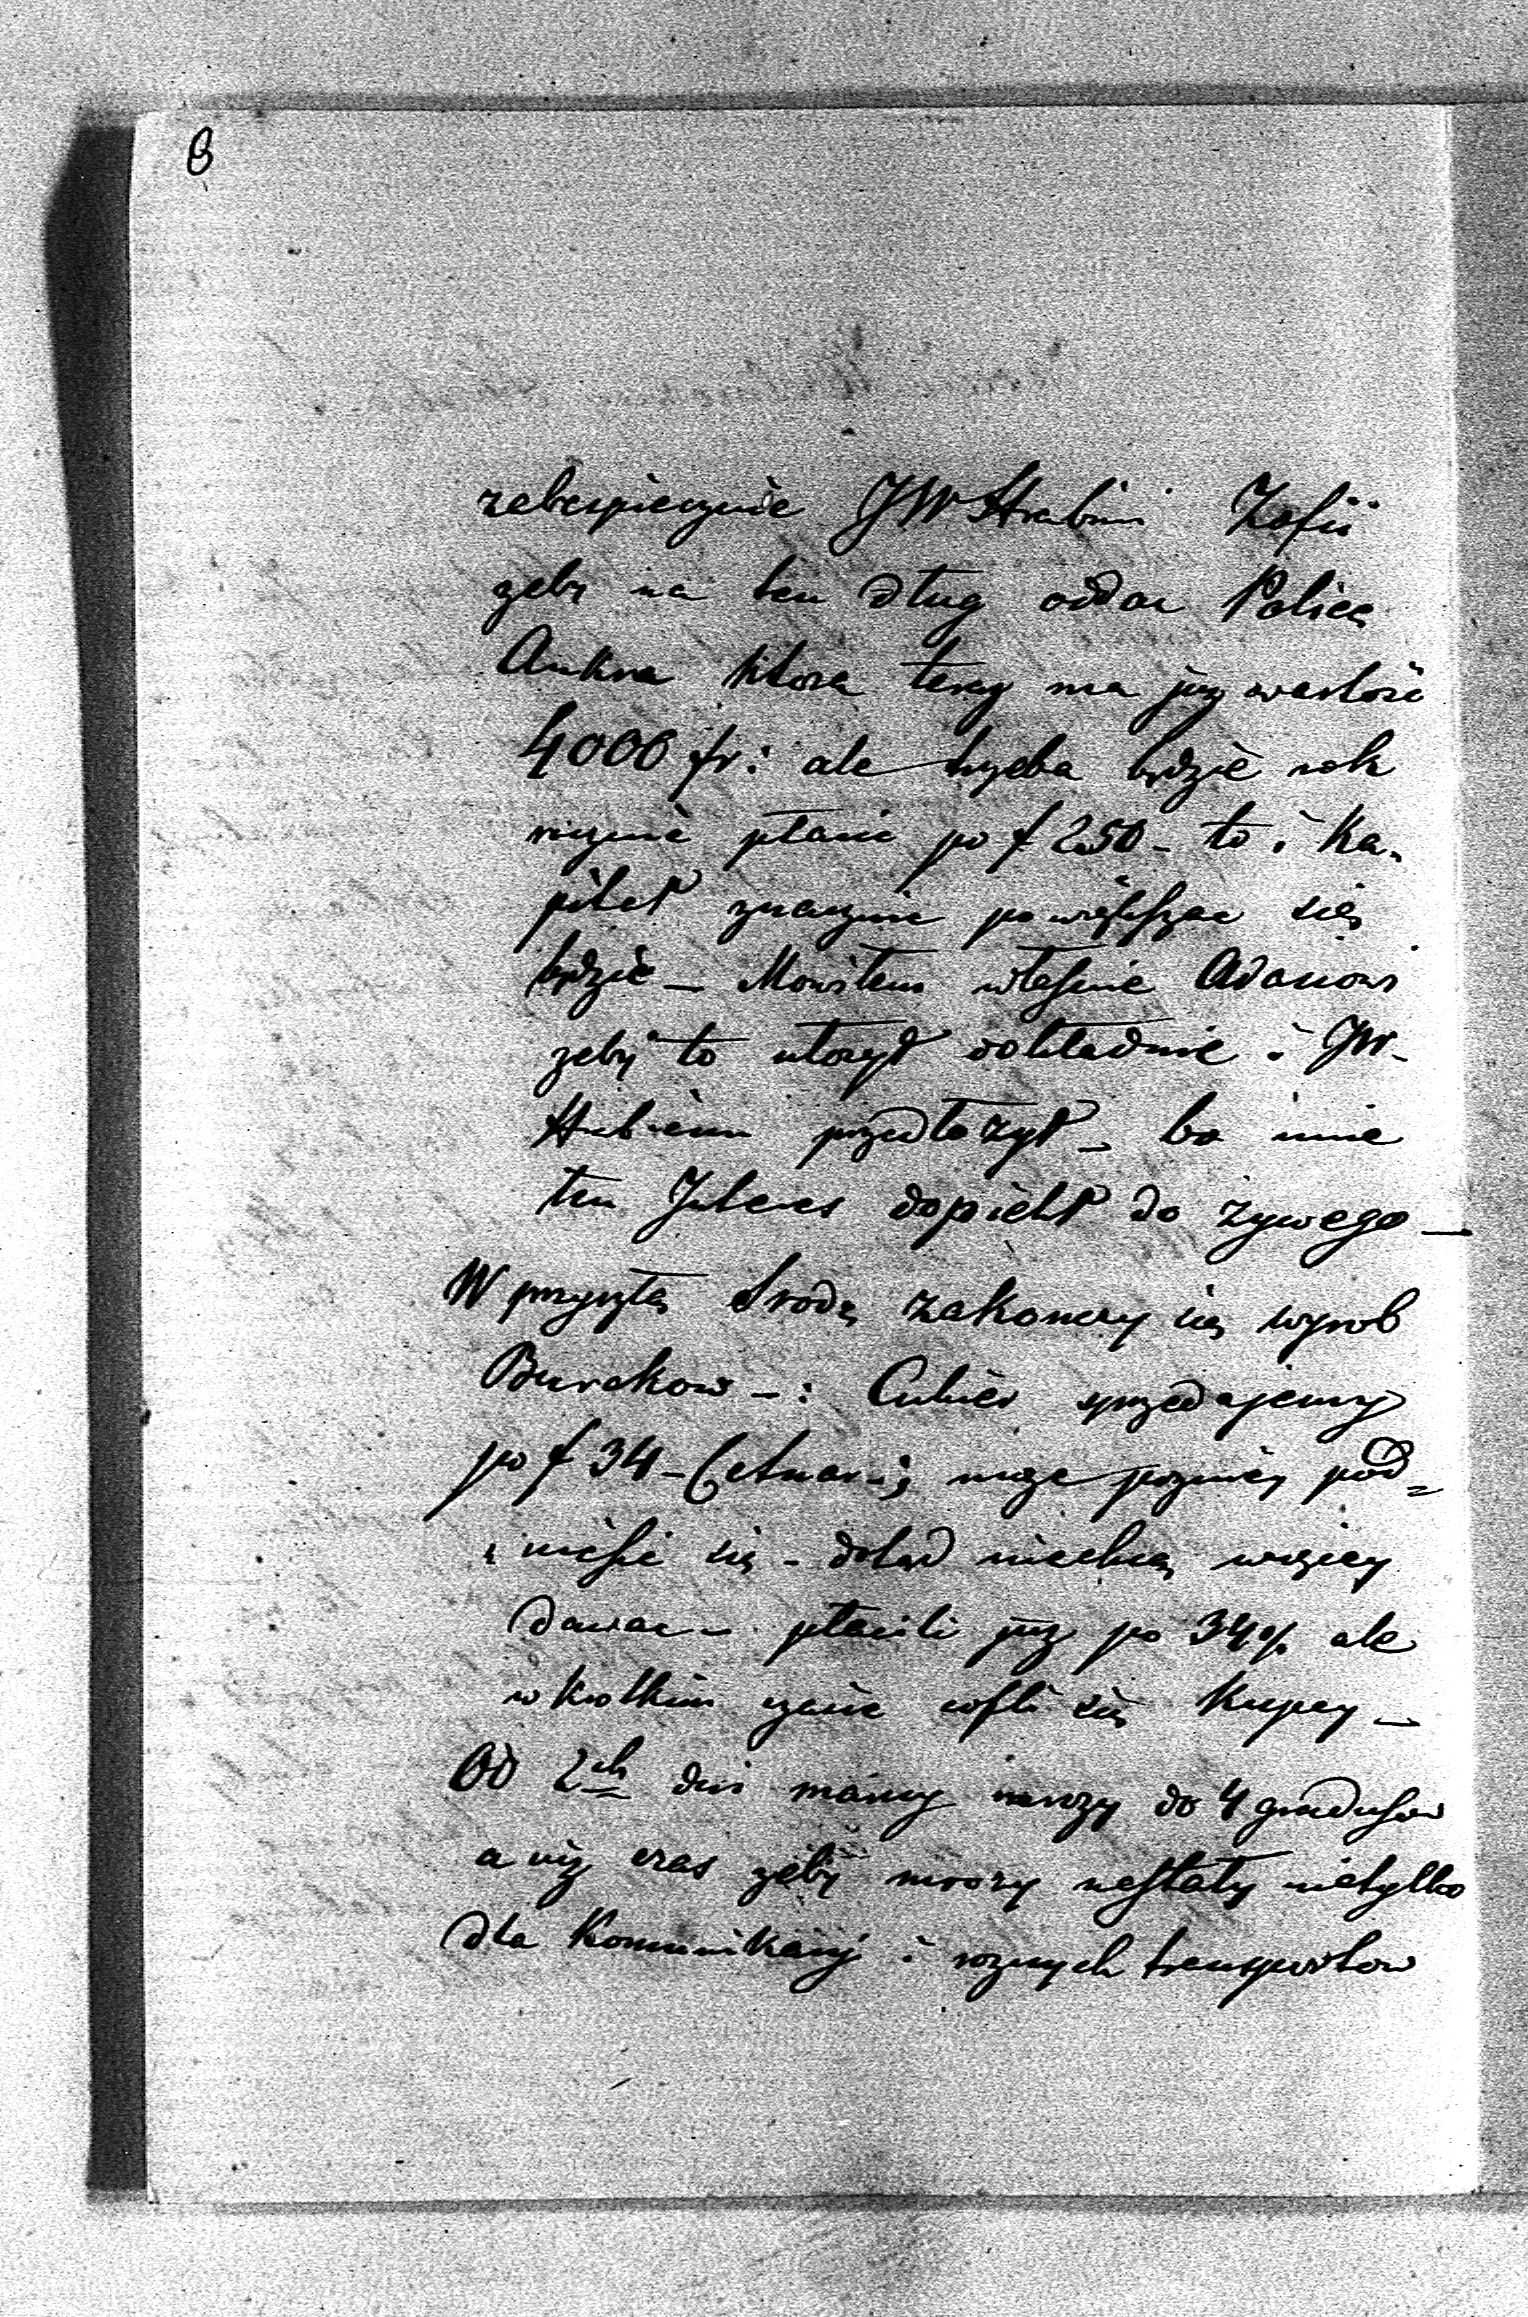 8
zabespieczenie JW Hrabini Zofii
zeby na ten dług oddac Policę
Ankra ktora teraz ma juz wartośc
4000 fr: ale trzeba będzie rok
rocznie płacic po f 250 - to i Ka-
pitał znacznie powiększac się
będzie - Mowiłem własnie Adamowi
zeby to ułozył dokładnie i JW-
Hrabiemu przedłozył - bo mnie
ten Interes dopiekł do zywego -
W przyszłą Srodę zakonczy się wyrob
Burakow -: Cukier sprzedajemy
po f 34 - Cetnar -; moze pozniey pod=
niesie się - dotąd niechcą więcey
dawac - płacili juz po 34 ale
w krotkim czasie cofli się Kupcy -
Od 2ch dni mamy mrozy do 4 gradusow
a czas zeby mrozy nastały nietylko
dla Komunikacyi i roznych transportow